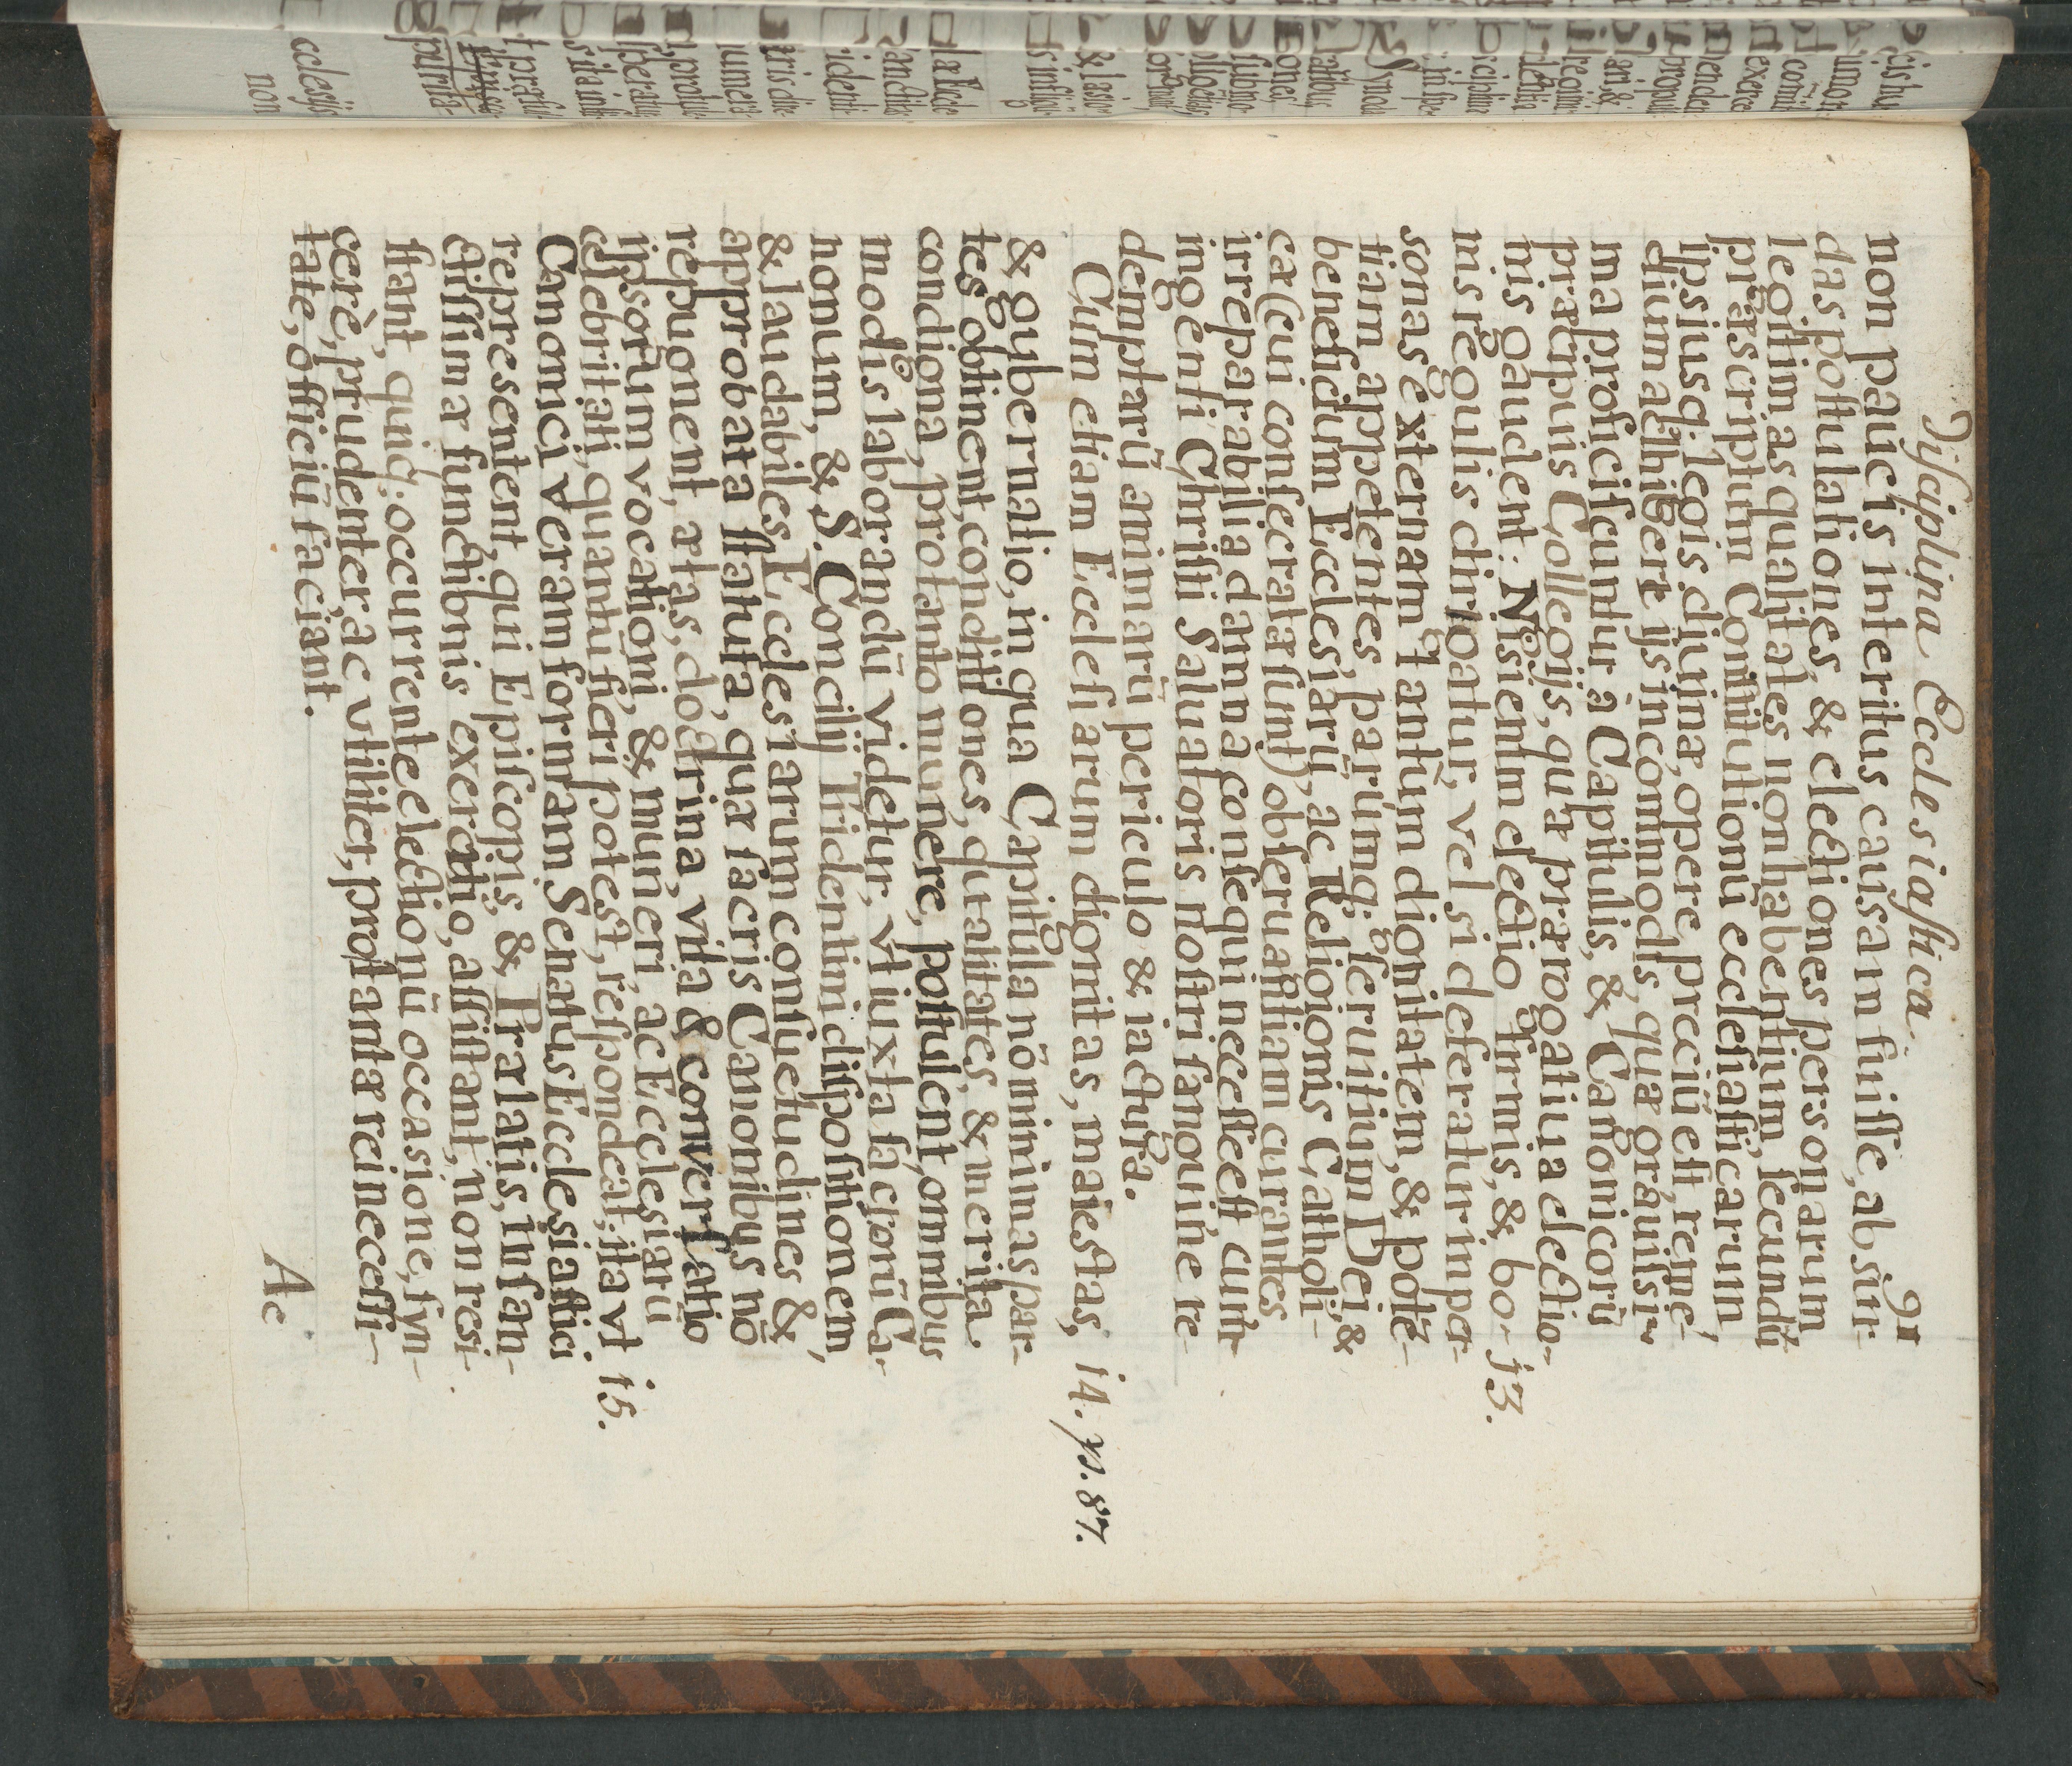 Disciplina Ecclesiastica. 91
non paucis interitus causam fuisse, ab sur-
das postulationes, & electiones personarum
legitimas qualitates non habentium, secundũ
præscriptum Constitutionũ ecclesiasticarum
Ipsiusq; legis diuinæ, opere preciũ est, reme-
dium adhibere ijs incommodis, quæ grauissi-
ma proficiscuntur à Capitulis, & Canonicorũ
præcipuis Collegijs, quæ prærogatiua electio-
nis gaudent: Nisi enim electio firmis, & bo- 13.
nis regulis dirigatur, vel si deferatur in per-
sonas externam tantum dignitatem, & pote-
tiam appetentes parumq; seruitium Dei, &
beneficium Ecclesiarũ, ac Religionis Catholi-
cæ (cui consecratæ sunt) obseruantiam curantes
irreparabilia damna consequi necesse est cum
ingenti Christi Saluatoris nostri sanguine re-
demptarũ animarũ periculo & iactura.
Cùm etiam Ecclesiarum dignitas, maiestas, 14. p. 87.
& gubernatio, in qua Capitula nõ minimas par-
tes obtinent, conditiones, qualitates, & merita
condigna, pro tanto munere, postulent, omnibus
modis laborandũ videtur, vt iuxta sacrorũ Ca-
nonum, & S. Concilij Tridentini dispositionem,
& laudabiles Ecclesiarum consuetudines &
approbata statuta, quæ sacris Canonibus nõ
repugnent, ætas, doctrina, vita & conversatio
ipsorum vocationi, & muneri, ac Ecclesiarũ
celebritati, quantũ fieri potest, respondeat; ita vt 15.
Canonici veram formam Senatus Ecclesiastici
repræsentent, qui Episcopis, & Prælatis, in san-
ctissimæ functionis exercitio, assistant, non resi-
stant, quiq; occurrente electionũ occasione, syn-
cerè, prudenter ac vtiliter, pro tantæ rei necessi-
tate, officiũ faciant.
Ac
ecclesijs
non